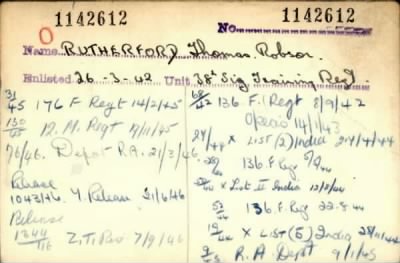 1142612
No. 1142612
O
Name RUTHERFORD Thomas Robson.
Enlisted 26 - 3 - 42 Unit 38th Sig Training Regt.
31/45 176 F Regt 14/2/45
130/45 12. M. Regt 9/11/45
76/46. Depot R.A. 21/3/46
Release
1043/46. Y. Release 21/6/46
Release
1344/46 Z.T. Res 7/9/46
68/42 136 F. Regt 8/9/42
14/1/43
24/44 x LIST (2) India 24/4/44
136. F Reg
x List II India
136. F Reg 22.8.44
x LIST (5) India
R. A. Depot 9/1/45